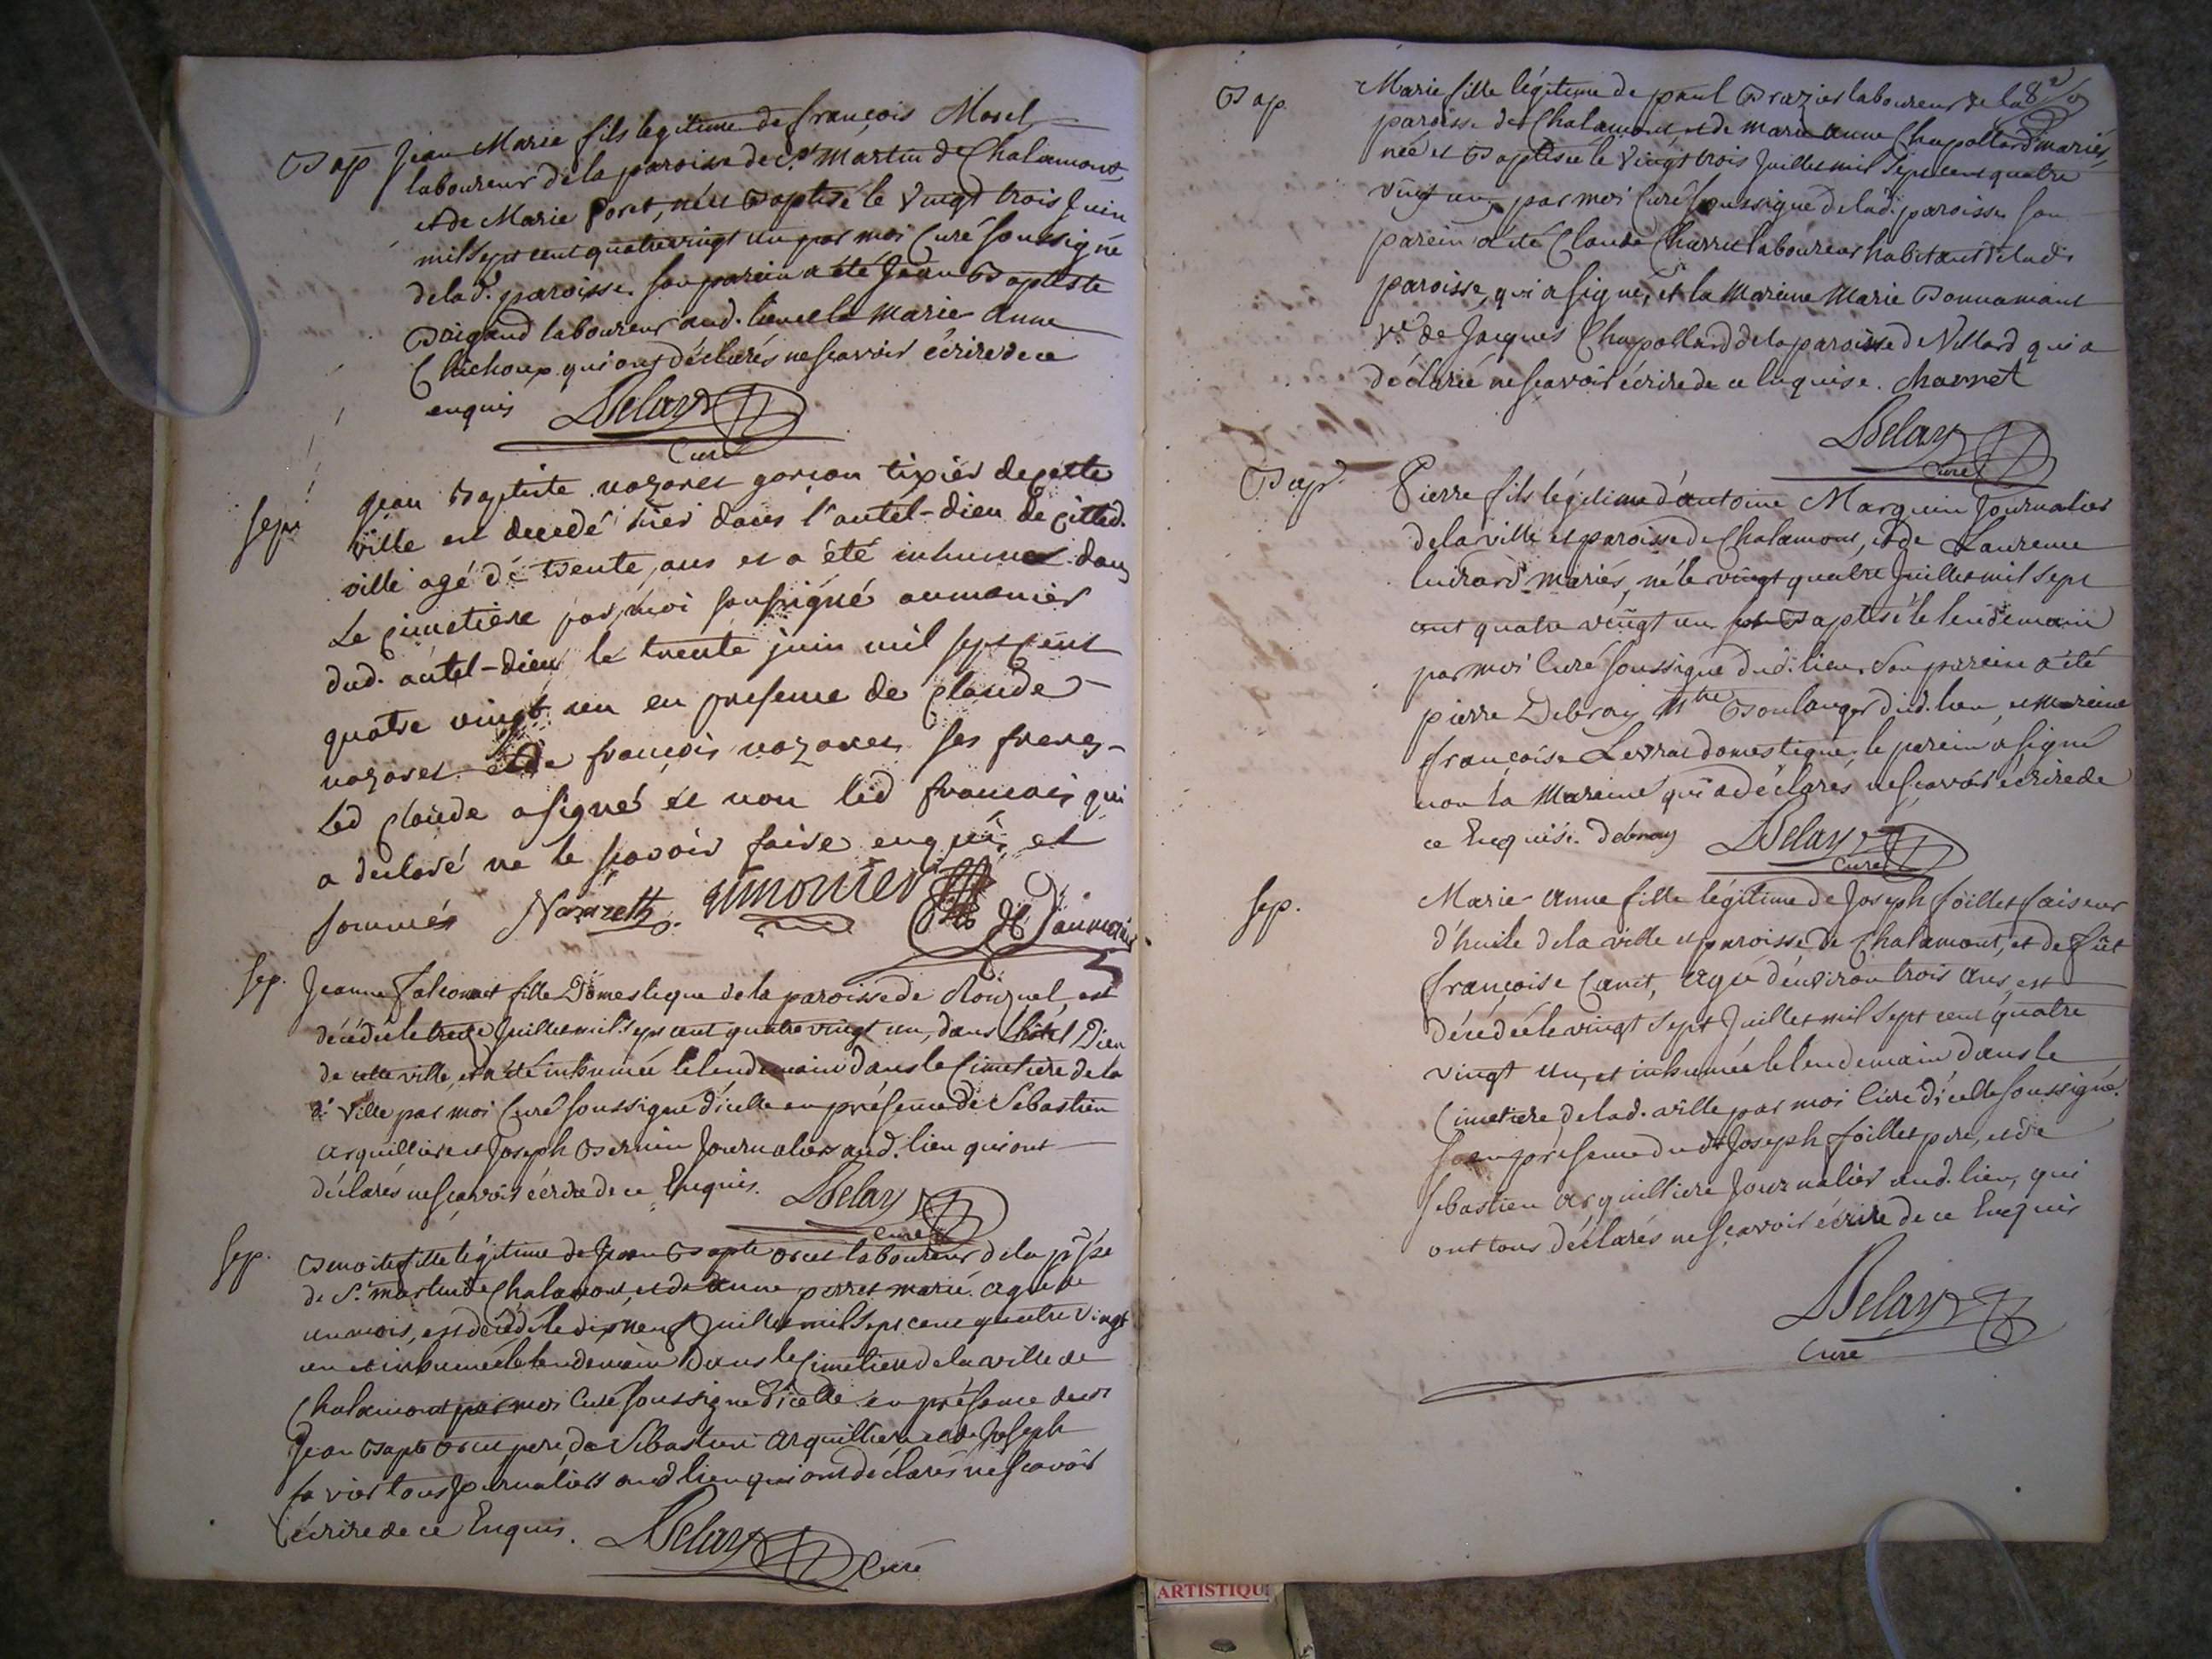 Bap Jean Marie fils legitime de françois Morel
laboureur de la paroisse de St martin de Chalamont,
et de Marie poret, né et Baptisé le vingt trois Juin
mil sept cent quatre vingt un par moi Curé soussigné
de lad. paroisse. son parein a été Jean Baptiste
Brigand laboureur aud. lieu et la marie anne
qui ont déclarés ne scavoir écrire de ce
enquis Delay
Curé
sep. jean Baptiste nazaret garcon tixier de cette
ville est decedé hier dans l'autel-dieu de citted.
ville agé de trente ans et a été inhumer dans
Le cimetiere par moi sousigné aumonier
dud. autel-dieu le trente juin mil sept cent
quatre vingt un en presence de claude
nazaret et de françois nazaret ses freres
Led claude a signé et non led francais qui
a declaré ne le savoir faire enquis et
sommés Nazareth.
sep. Jeanne falconet fille Domestique de la paroisse de
décédée le treize Juillet mil sept cent quatre vingt un, dans l'hôtel Dieu
de cette ville, et a été inhumée le lendemain dans le Cimetiere de la
d. ville par moi Curé soussigné d'icelle en présence de Sebastien
arquilliere et Joseph Journaliers aud. lieu qui ont
déclarés ne scavoir écrire de ce Enquis. Delay
Curé
sep. Benoite fille légitime de Jean Bapte orcet laboureur de la psse
de St martin de Chalamont, et de anne perret marié. agée de
un mois, est décédée le dix neuf Juillet mil sept cent quatre vingt
un et inhumée le lendemain dans le Cimetiere de la ville de
Chalamont par moi Curé soussigné d'icelle en présence dudt
Jean Bapte orcet pere, de Sébastien arquilliere et de Joseph
tous Journaliers aud lieu qui ont déclarés ne scavoir
écrire de ce Enquis. Delay Curé
Bap. Marie fille légitime de paul Brazier laboureur de la
paroisse de Chalamont, et de marie anne Chapollard mariés,
née et Baptisée le vingt trois Juillet mil sept cent quatre
vingt un, par moi Curé soussigné de lad. paroisse, son
parein a été Claude Charret laboureur habitant de lad.
paroisse, qui a signé, et la Mareine Marie Bonnamant
ve. de Jacques Chapollard de la paroisse de Villard qui a
déclaré ne scavoir écrire de ce Enquise. charret
Delay
Curé
Bap. Pierre fils légitime d'antoine Marguin Journalier
de la ville et paroisse de Chalamont, et de Laurence
mariés, né le vingt quatre Juillet mil sept
cent quatre vingt un Baptisé le lendemain
par moi Curé soussigné dud. lieu. son pareine a été
pierre Debray Mtre Boulanger dud. lieu, et mareine
françoise domestique. le parein a signé
non la Mareine qui a déclarés ne scavoir écrire de
ce Enquise. debray Delay
Curé
sep. Marie anne fille légitime de Joseph foillet faiseur
d'huile de la ville et paroisse de Chalamont, et de fût
françoise Canet, agée d'environ trois ans, est
décédée le vingt sept Juillet mil sept cent quatre
vingt un, et inhumée le lendemain dans le
Cimetiere de lad. ville par moi Curé d'icelle soussigné.
en présence dudt Joseph foillet pere, et de
sebastien arquilliere Journalier aud. lieu, qui
ont tous déclarés ne scavoir écrire de ce Enquis
Delay
Curé
ARTISTIQU